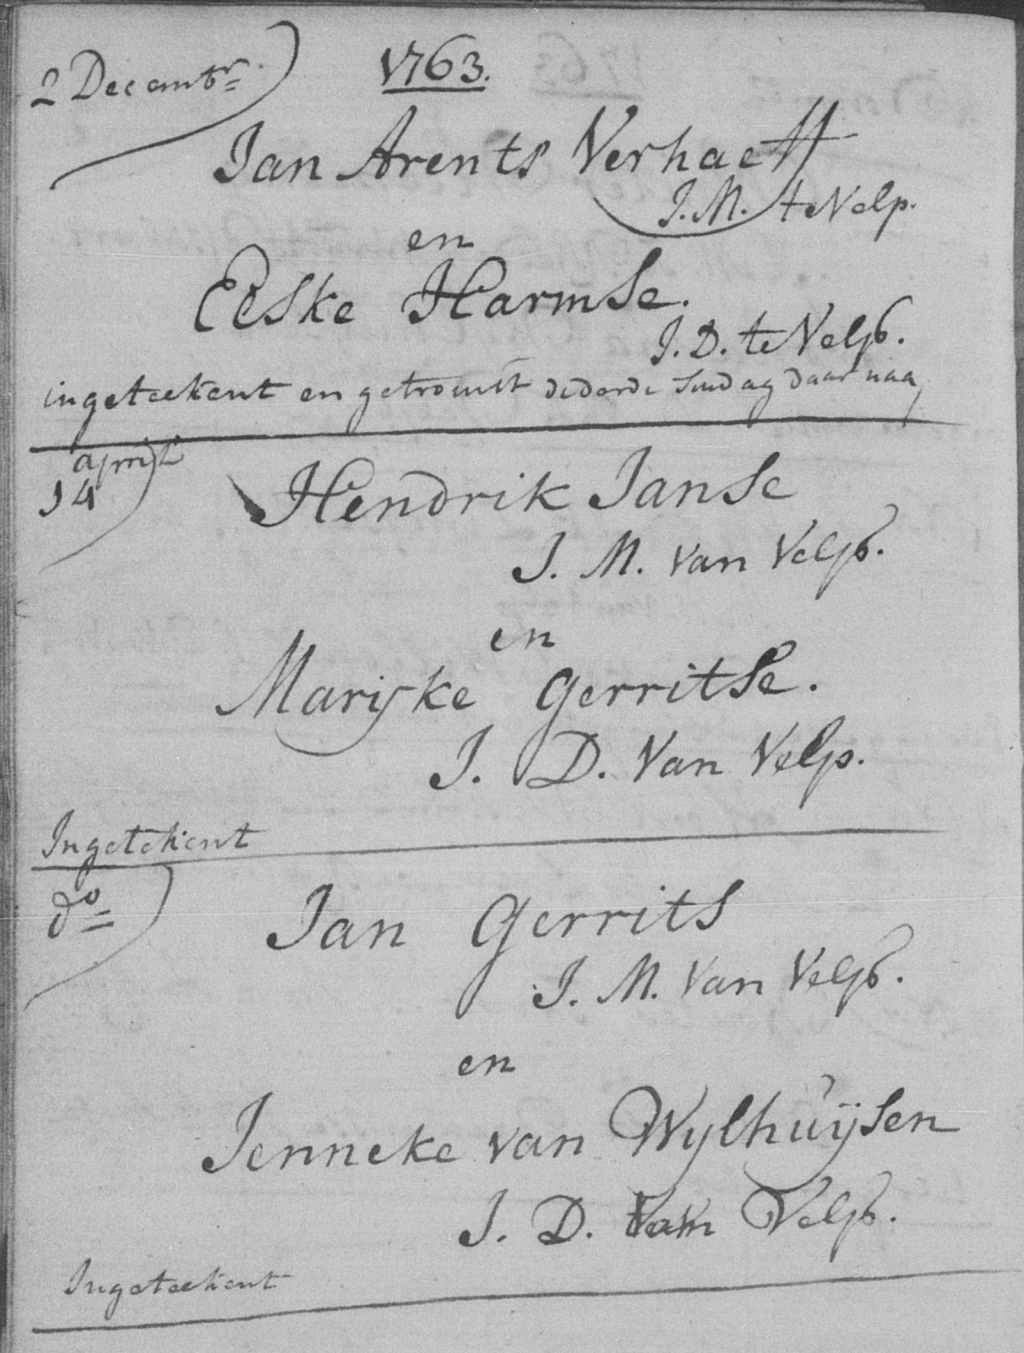 1763.
2 Decembr
Jan Arents Verhaeff
J.M. te Velp.
en
Eeske Harmse.
J.D. te Velp.
ingeteekent en getrouwt dederde Sondag daar naa
april
14
Hendrik Janse
J. M. Van Velp.
en
Marijke Gerritse.
J. D. Van Velp.
Ingetekent
do
Jan Gerrits
J. M. Van Velp.
en
Jenneke van Wylhuijsen
J. D. Van Velp.
Ingeteekent